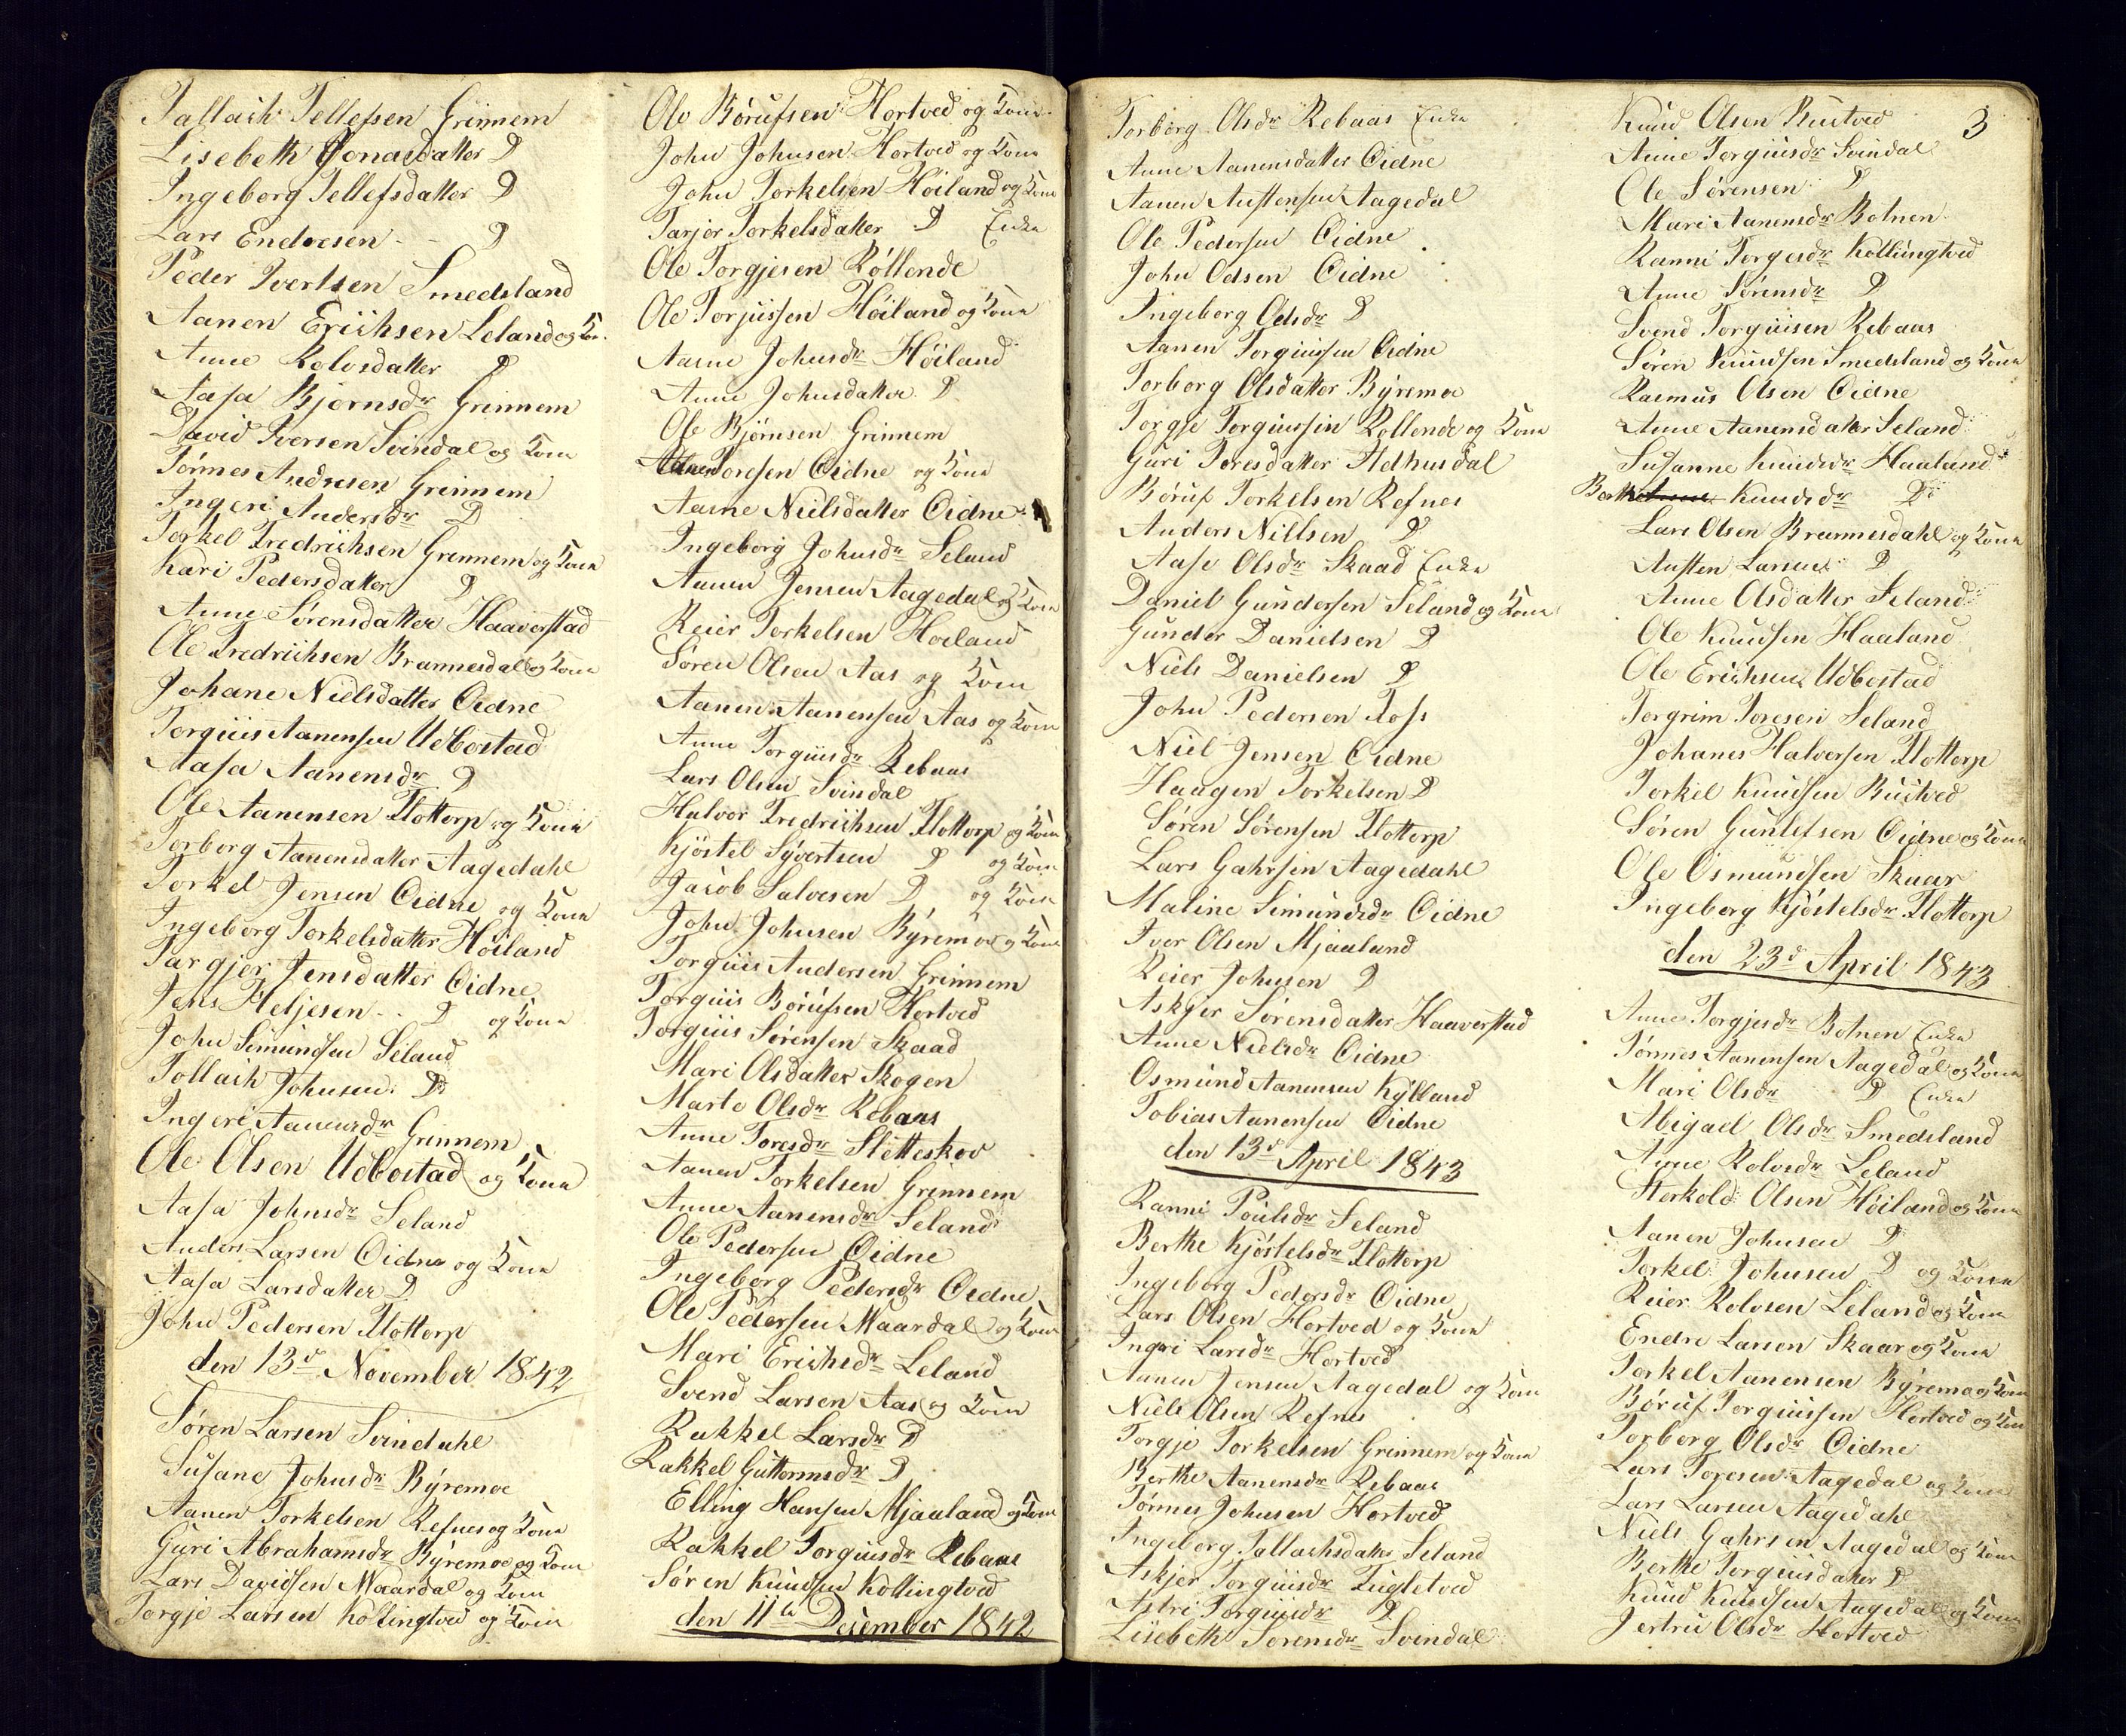 Tallach Tellefsen Grinnem
Lisebeth Jonasdatter D
Ingeborg Tellefsdatter D
Lars Endresen - - D
Peder Ivertsen Smedsland
Aanen Erichsen Leland og Kon.
Anne Rolvsdatter D
Aasa Bjørnsdr Grinnem
David Iversen Svindal og Kone
Tønnes Andresen Grinnem
Ingeri Andersdr D
Torkel Fredrichsen Grinnem og Kone
Kari Pedersdatter D
Anne Sørensdatter Haaverstad
Ole Fredrichsen Brannesdal og Kone
Johane Nielsdatter Eidne
Torgiüs Aanensen Udbostad
Aasa Aanensdr D
Ole Aanensen Flottorp og Kone
Torborg Aanensdatter Aagedahl
Torkel Jensen Eidne og Kone
Ingeborg Torkelsdatter Høiland
Targjer Jensdatter Eidne
Jens Heljesen - - D og Kone
John Simundsen Seland
Tollach Johnsen D
Ingeri Aanensdr Grinnem
Ole Olsen Udbostad og Kone
Aasa Johnsdr Seland
Anders Larsen Eidne og Kone
Aasa Larsdatter D
John Pedersen Flottorp
den 13d November 1842
Søren Larsen Svindahl
Susane Johnsdr Býremoe
Aanen Torkelsen Refnes og Kone
Guri Abrahamsdr Býremoe og Kone
Lars Davidsen Maardal og Kone
Torgje Larsen Kollingtved og Kone
Ole Børufsen Hortved og Kone
John Johnsen Hortved og Kone
John Torkelsen Høiland og Kone
Tarjer Torkelsdatter D Enke
Ole Torgjesen Røllende
Ole Torjussen Høiland og Kone
Aasne Johnsdr Høiland
Anne Johnsdatter D
Ole Bjørnsen Grinnem
Toresen Eidne og Kone
Aasne Nielsdatter Eidne
Ingeborg Johnsdr Seland
Aanen Jensen Aagedal og Kone
Reier Torkelsen Høiland
Søren Olsen Aas og Kone
Aanen Aanensen Aas og Kone
Anne Torgiusdr Rebaas
Lars Olsen Svindal
Halvor Fredrichsen Flottorp og Kone
Kjøstel Sÿvertsen D og Kone
Jacob Salvesen D og Kone
John Johnsen Býremoe og Kone
Torgiüs Andersen Grinnem
Torgiüs Børufsen Hortved
Torgiüs Sørensen Skaad
Mari Olsdatter Skogen
Marte Olsdr Rebaas
Anne Toresdr Sletteskov
Aanen Torkelsen Grinnem
Anne Aanensdr Seland
Ole Pedersen Eidne
Ingeborg Pedersdr Eidne
Ole Pedersen Maardal og Kone
Mari Erichsdr Leland
Svend Larsen Aas og Kone
Rakkel Larsdr D
Rakkel Guttormsdr D
Elling Hansen Mjaaland og Kone
Rakkel Torgiusdr Rebaas
Søren Knudsen Kollingtved
den 11te December 1842
Torborg Olsdr Rebaas Enke
Anne Aanensdatter Eidne
Aanen Austensen Aagedal
Ole Pedersen Eidne
John Odsen Eidne
Ingeborg Odsdr D
Aanen Torgiussen Eidne
Torborg Olsdatter Býremoe
Torgje Torgiussen Rollende og Kone
Guri Toresdatter Fidhusdal
Børuf Torkelsen Refnes
Anders Nillsen D
Aase Olsdr Skaad Enke
Daniel Gundersen Seland og Kone
Gunder Danielsen D
Niels Danielsen D
John Pedersen Foss
Niel Jensen Eidne
Haagen Torkelsen D
Søren Sørensen Flottorp
Lars Gahrsen Aagedahl
Maline Simundsdr Eidne
Iver Olsen Mjaaland
Reier Johnsen D
Askjer Sørensdatter Haaverstad
Anne Nielsdr Eidne
Osmund Aanensen Kÿlland
Tobias Aanensen Eidne
den 13d April 1843
Ranni Poulsdr Seland
Berthe Kjøstelsdr Flottorp
Ingeborg Pedersdr Eidne
Lars Olsen Hortved og Kone
Ingeri Larsdr Hortved
Aanen Jensen Aagedal og Kone
Niels Olsen Refnes
Torgje Torkelsen Grinnem og Kone
Berthe Aanensdr Rebaas
Tønnes Johnsen Hortved
Ingeborg Tallachsdatter Seland
Askjer Torgiusdr Fugletved
Astri Torgiusdr D
Lisebeth Sørensdr Svindal
3
Knud Olsen Bustved
Anne Torgiusdr Svindal
Ole Sørensen D
Mari Aanensdr Botnen
Ranni Torgesdr Kollungtved
Anne Sørensdr D
Svend Torgiusen Rebaas
Søren Knudsen Smedsland og Kone
Rasmus Olsen Eidne
Anne Aanensdatter Seland
Susanne Knudsdr Haaland
Berthe Knudsdr D
Lars Olsen Brannesdahl og Kone
Austen Larsen D
Anne Olsdatter Seland
Ole Knudsen Haaland
Ole Erichsen Udbostad
Torgrim Toresen Seland
Johanes Halvorsen Flottorp
Torkel Knudsen Bustved
Søren Gunlefsen Eidne og Kone
Ole Osmundsen Skaar
Ingeborg Kjøstelsdr Flottorp
den 23d April 1843
Anne Torgjesdr Botnen Enke
Tønnes Aanensen Aagedal og Kone
Mari Olsdr D Enke
Abigael Olsdr Smedsland
Anne Rolvsdr Leland
Storkold Olsen Høiland og Kone
Aanen Johnsen D
Torkel Johnsen D og Kone
Reier Rolvsen Leland og Kone
Endre Larsen Skaar og Kone
Torkel Aanensen Býremo og Kone
Børuf Torgiussen Hortved og Kone
Torborg Olsdr Eidne
Lars Toresen Aagedal og Kone
Lars Larsen Aagedahl
Niels Gahrsen Aagedal og Kone
Berthe Torgiusdatter D
Knud Knudsen Aagedal og Kone
Jertru Olsdr Hortved